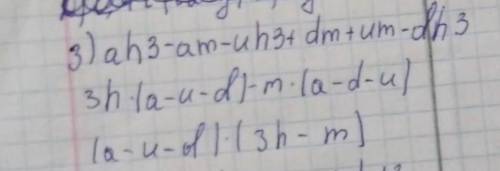 3) ah3-am-uh3+dm+um-dh3
3h·(a-u-d)-m·(a-d-u)
(a-u-d)·(3h-m)